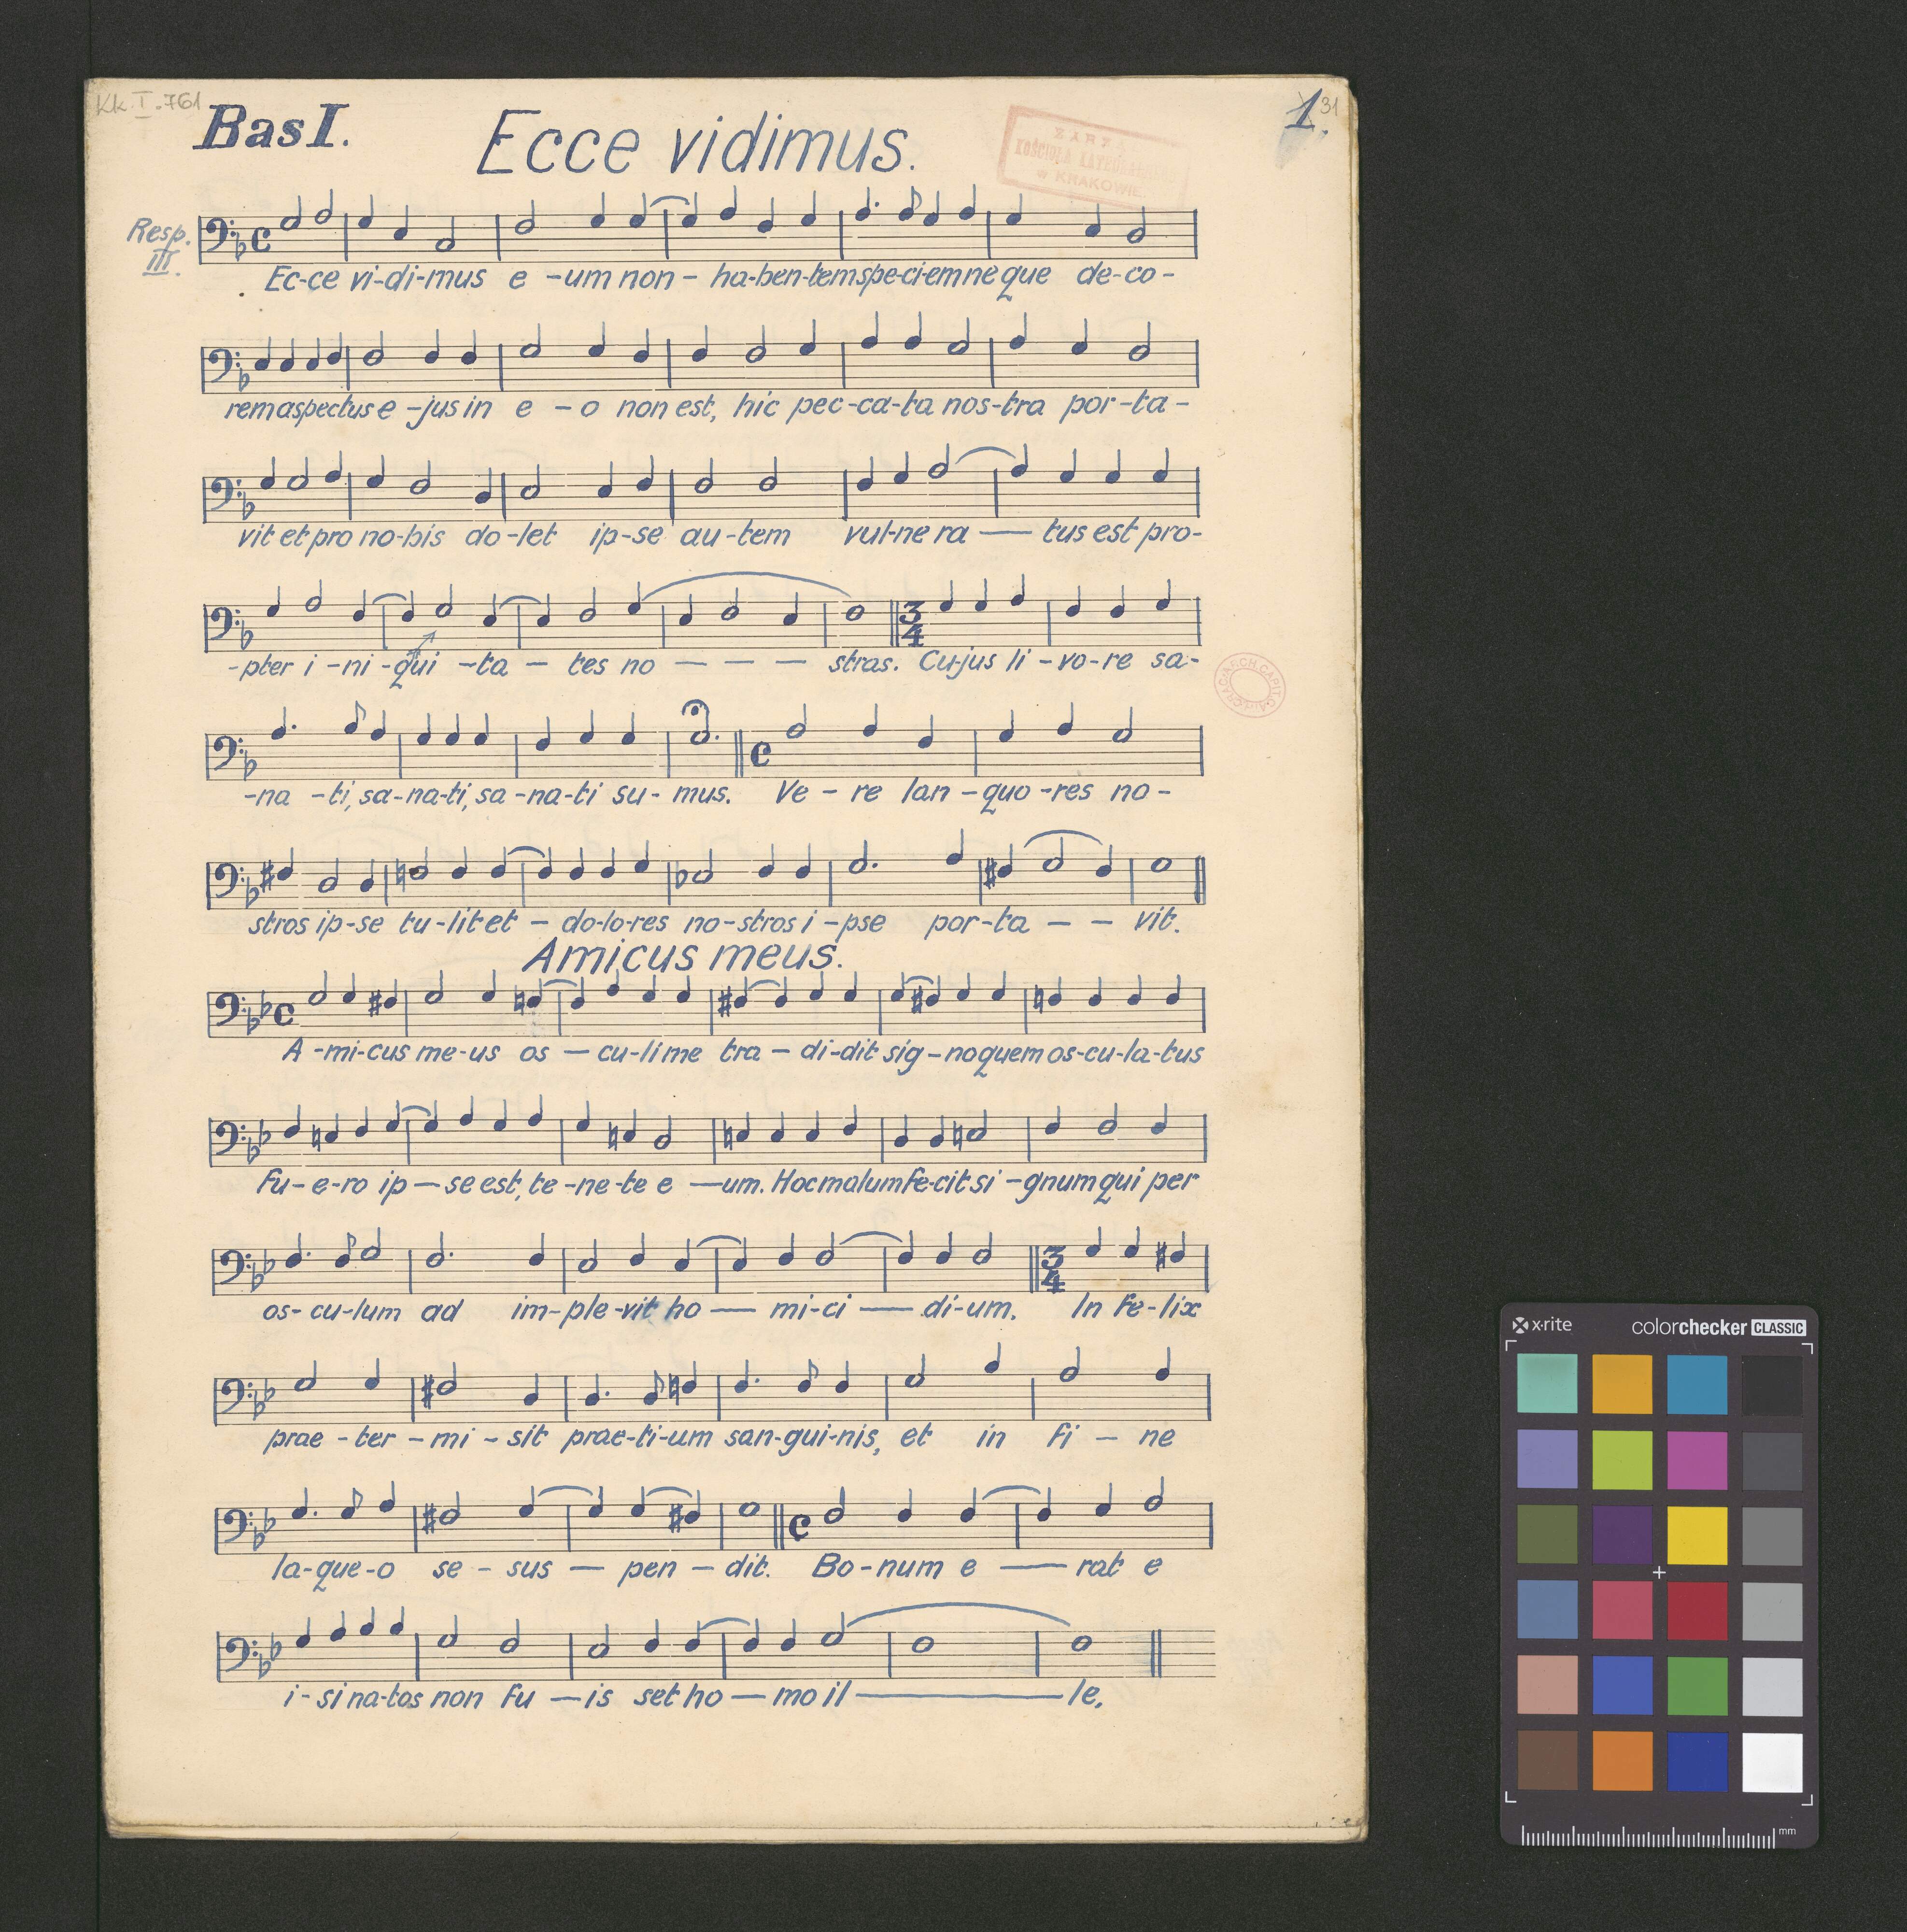 Kk. I. 761
Bas I.
Ecce vidimus.
1.
31
KOŚCIOŁA
w KRAKOWIE.
Resp.
III.
Ec-ce vi-di-mus e -um non - ha-ben-tem spe-ci-em ne que de-co-
rem aspectus e -jus in e - o non est, hic pec-ca-ta nos-tra por-ta-
vit et pro no-bis do-let ip-se au-tem vul-ne ra — tus est pro-
-pter i -ni -qui -ta - tes no — — — stras. Cu-jus li - vo-re sa-
-na -ti, sa-na-ti, sa -na-ti su- mus. Ve - re lan - quo -res no-
stros ip-se tu-lit et - do-lo-res no-stros i -pse por-ta — — vit.
Amicus meus.
A -mi-cus me-us os — cu-li me tra - di-dit sig-no quem os-cu-la-tus
fu-e-ro ip — se est, te -ne-te e — um. Hoc malum fe-cit si -gnum qui per
os- cu-lum ad im-ple-vit ho — mi-ci — di-um. In fe-lix
prae - ter - mi - sit prae-ti-um san-gui-nis, et in fi - ne
la-que-o se - sus — pen - dit. Bo-num e — rat e
i- si na-tas non fu — is set ho — mo il — le.
x·rite
colorchecker CLASSIC
mm